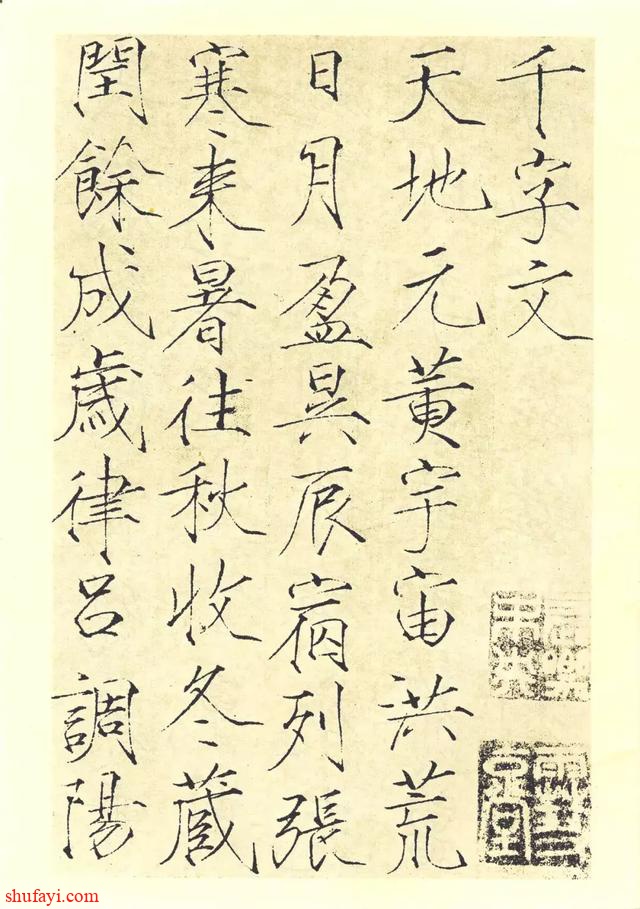 千字文
天地元黄宇宙洪荒
日月盈昃辰宿列張
寒来暑往秋收冬蔵
閏餘成歲律呂調陽
shufayi.com